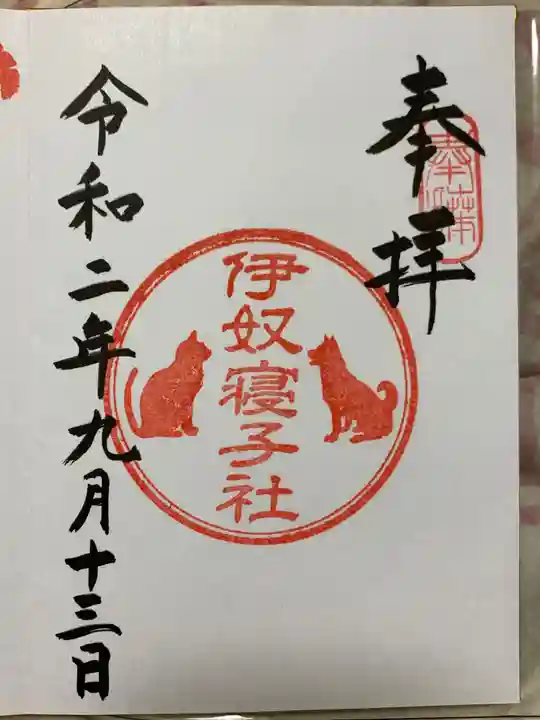 奉拝
伊奴寝子社
令和二年九月十三日